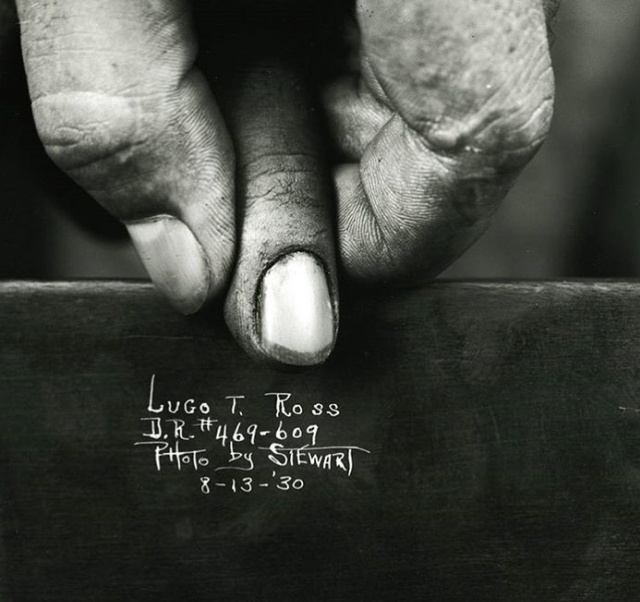 Lugo T. Ross
D.R. #469-609
Photo by Stewart
8-13-'30